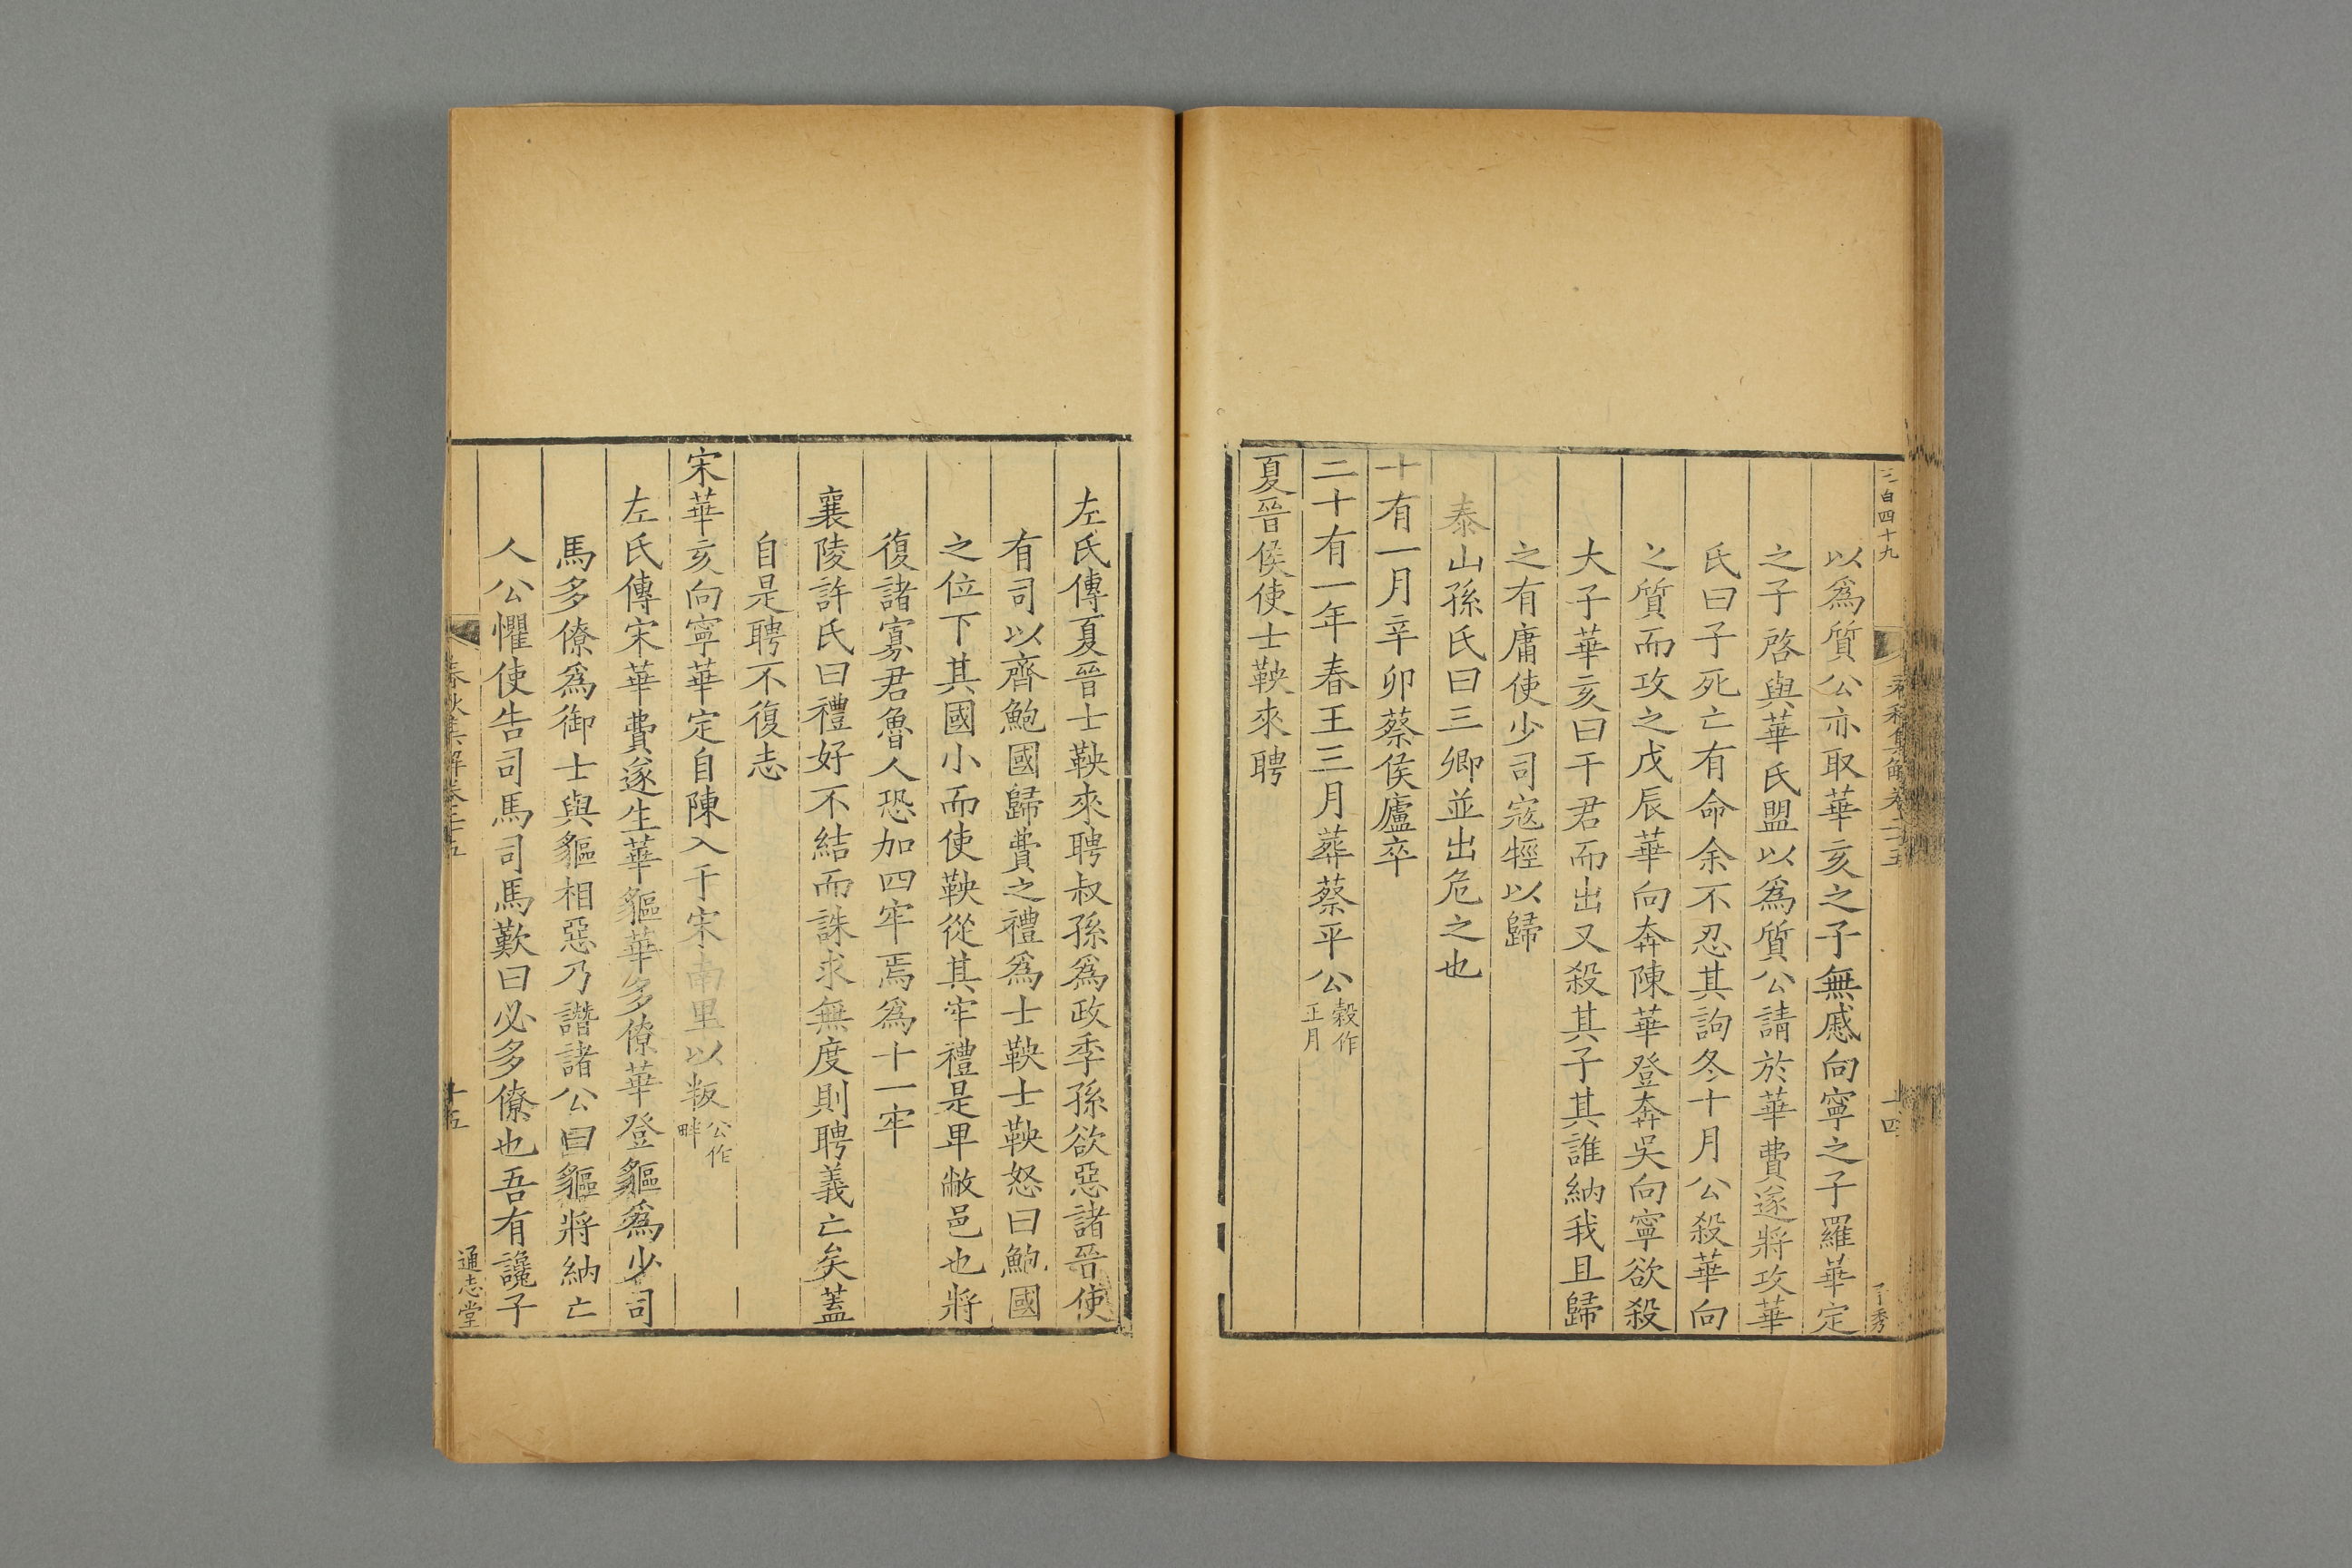 三百四十九
春秋集解卷二十五
十四
以爲質公亦取華亥之子無慼向寧之子羅華定
之子啓與華氏盟以爲質公請於華費遂將攻華
氏曰子死亡有命余不忍其訽冬十月公殺華向
之質而攻之戊辰華向奔陳華登奔吳向寧欲殺
大子華亥曰干君而出又殺其子其誰納我且歸
之有庸使少司寇牼以歸
泰山孫氏曰三卿並出危之也
十有一月辛卯蔡侯廬卒
二十有一年春王三月葬蔡平公穀作正月
夏晉侯使士鞅來聘
左氏傳夏晉士鞅來聘叔孫爲政季孫欲惡諸晉使
有司以齊鮑國歸費之禮爲士鞅士鞅怒曰鮑國
之位下其國小而使鞅從其牢禮是卑敝邑也將
復諸寡君魯人恐加四牢焉爲十一牢
襄陵許氏曰禮好不結而誅求無度則聘義亡矣蓋
自是聘不復志
宋華亥向寧華定自陳入于宋南里以叛公作畔
左氏傳宋華費遂生華貙華多僚華登貙爲少司
馬多僚爲御士與貙相惡乃譖諸公曰貙將納亡
人公懼使告司馬司馬歎曰必多僚也吾有讒子
春秋集解卷二十五
十五
通志堂